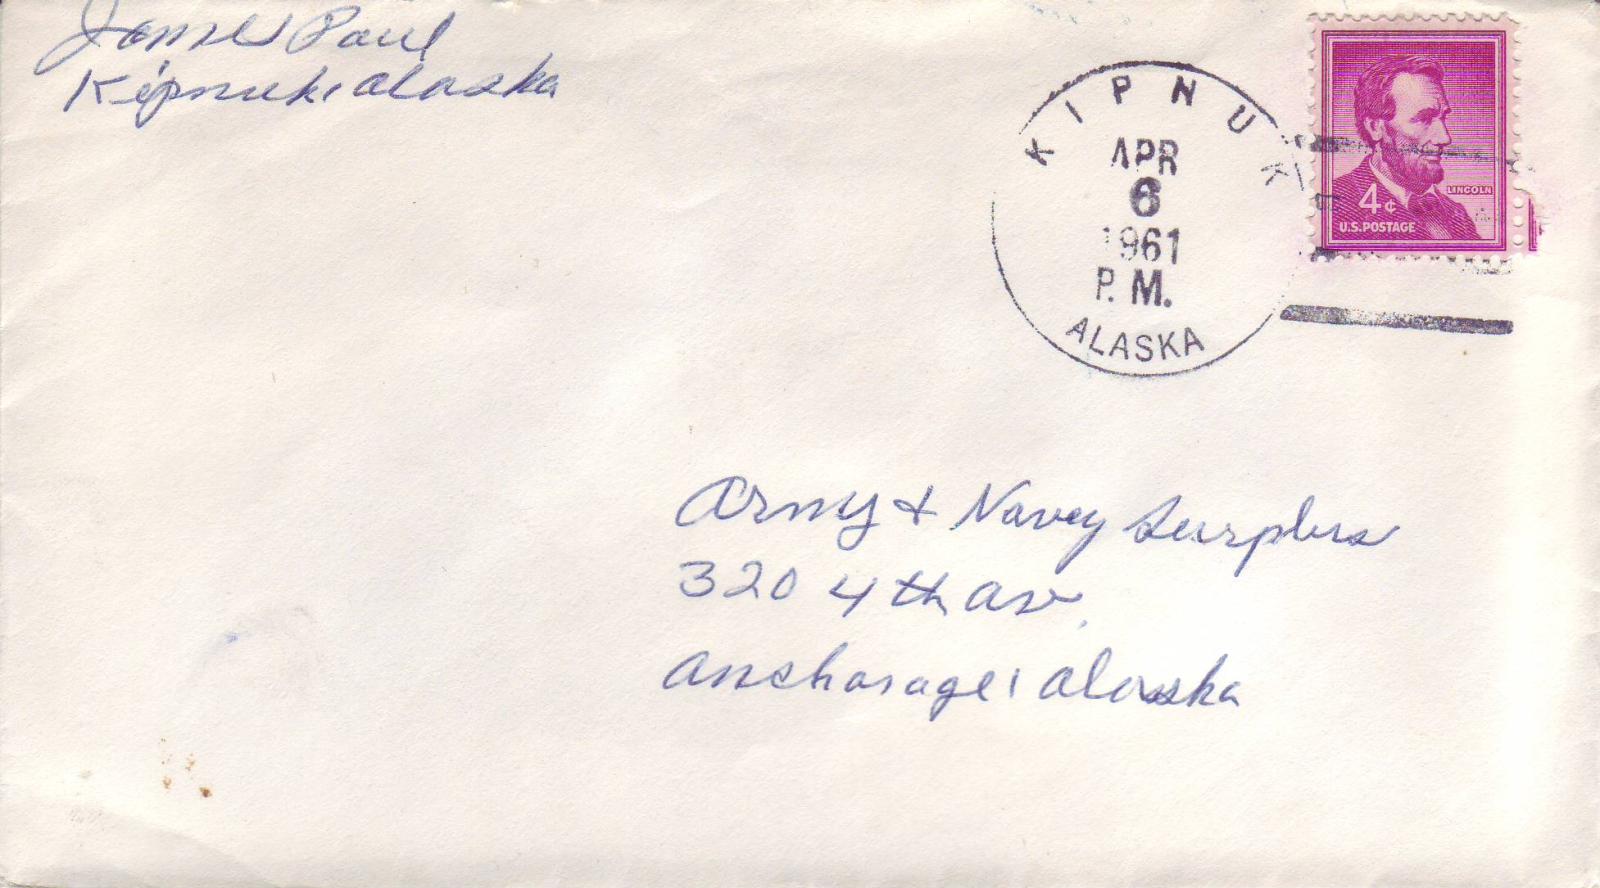 James Paul
Kipnuk, Alaska
KIPNUK
APR
6
1961
P. M.
ALASKA
LINCOLN
4¢
U.S. POSTAGE
Army & Navey Surplus
320 4th Av.
Anchorage, Alaska